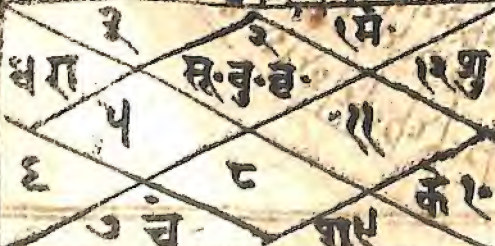 ३ २ १मं
४ रा सू.बु.बृ. १२शु
५ ११
६ ८ के १०
७ चं